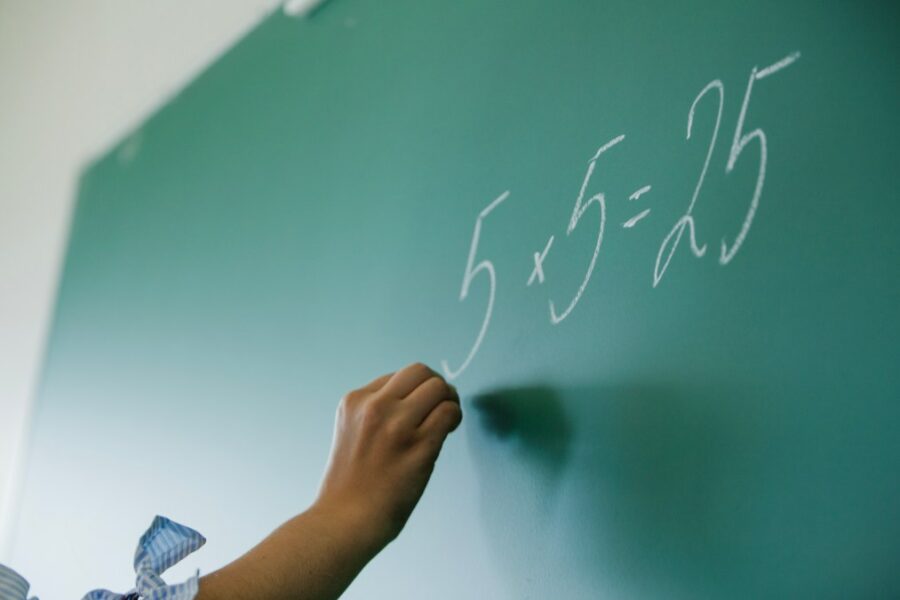 5 × 5 = 25